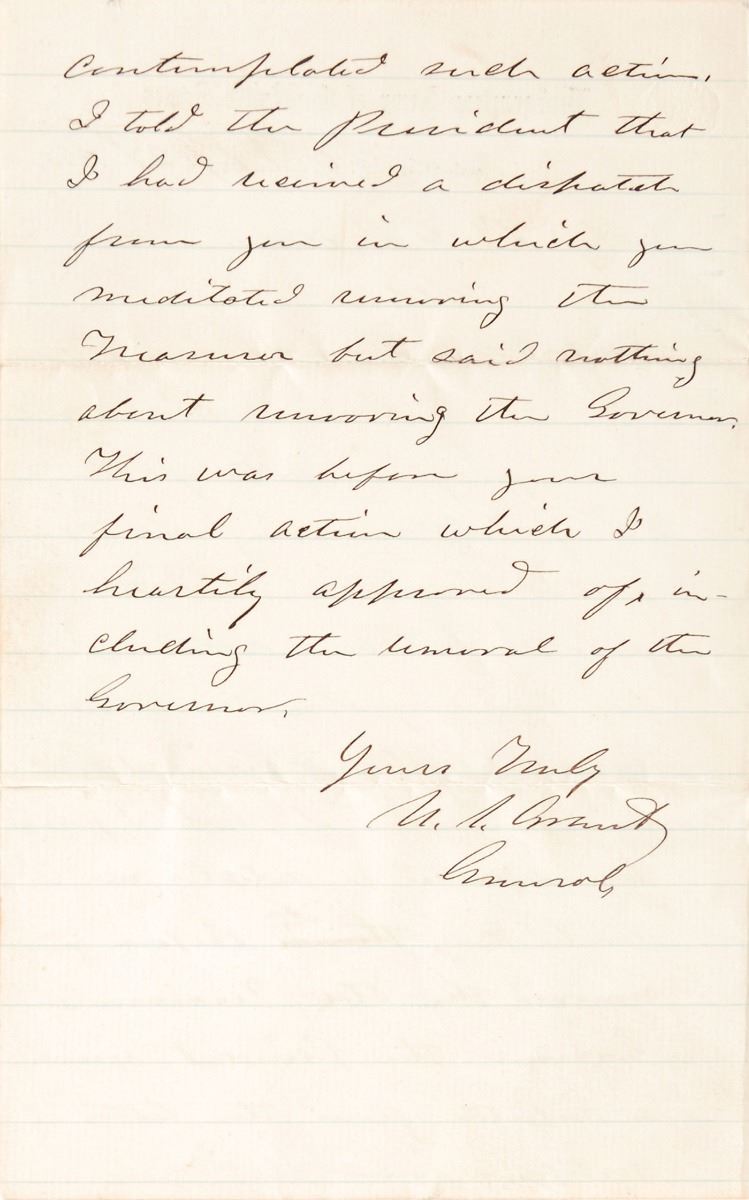 contemplated such action.
I told the President that
I had received a dispatch
from you in which you
meditated removing the
Treasurer but said nothing
about removing the Governor.
This was before your
final action which I
heartily approved of, in-
cluding the removal of the
Governor.
Yours Truly
U. S. Grant
General